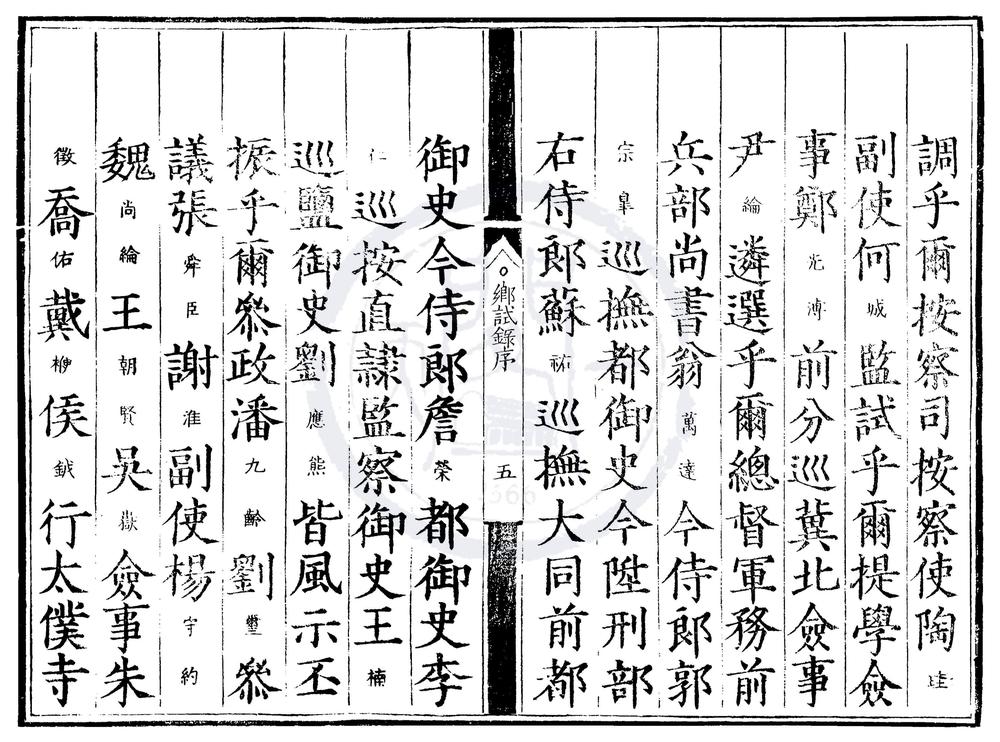 調乎爾按察司按察使陶
副使何城監試乎爾提學僉
事鄭光溥前分巡冀北僉事
尹綸遴選乎爾總督軍務前
兵部尚書翁萬達今侍郎郭
宗臯巡撫都御史今陞刑部
右侍郎蘇祐巡撫大同前都
鄉試錄序
五
御史今侍郎詹榮都御史李
仁巡按直隸監察御史王楠
巡鹽御史劉應熊皆風示丕
振乎爾叅政潘九齡劉璽叅
議張舜臣謝淮副使楊守約
魏尚綸王朝賢吳嶽僉事朱
徵喬佑戴侯鉞行太僕寺